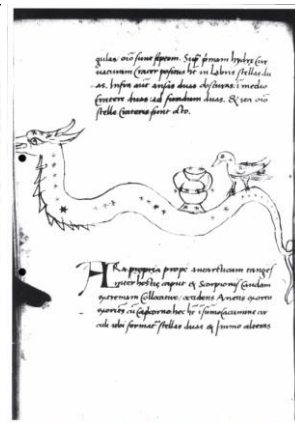 gulas oiō sunt septem. Sup p̄mam hydre cur
uaturam Crater positus he in labris stellas du
as. Infra aut ansas duas obscuras: i medio
Cratere duas: ad fundum duas. & ita oiō
stelle Crateris sunt octo.
ARa propria prope antarticum tanges
inter hostie caput & Scorpionis Caudam
extremam Collocatur. occidens Arietis exortu
exoriēs cū Capcorno. hec he i sumo cacumine cir
culi ubi formatᵉ stellas duas & Immo alteras